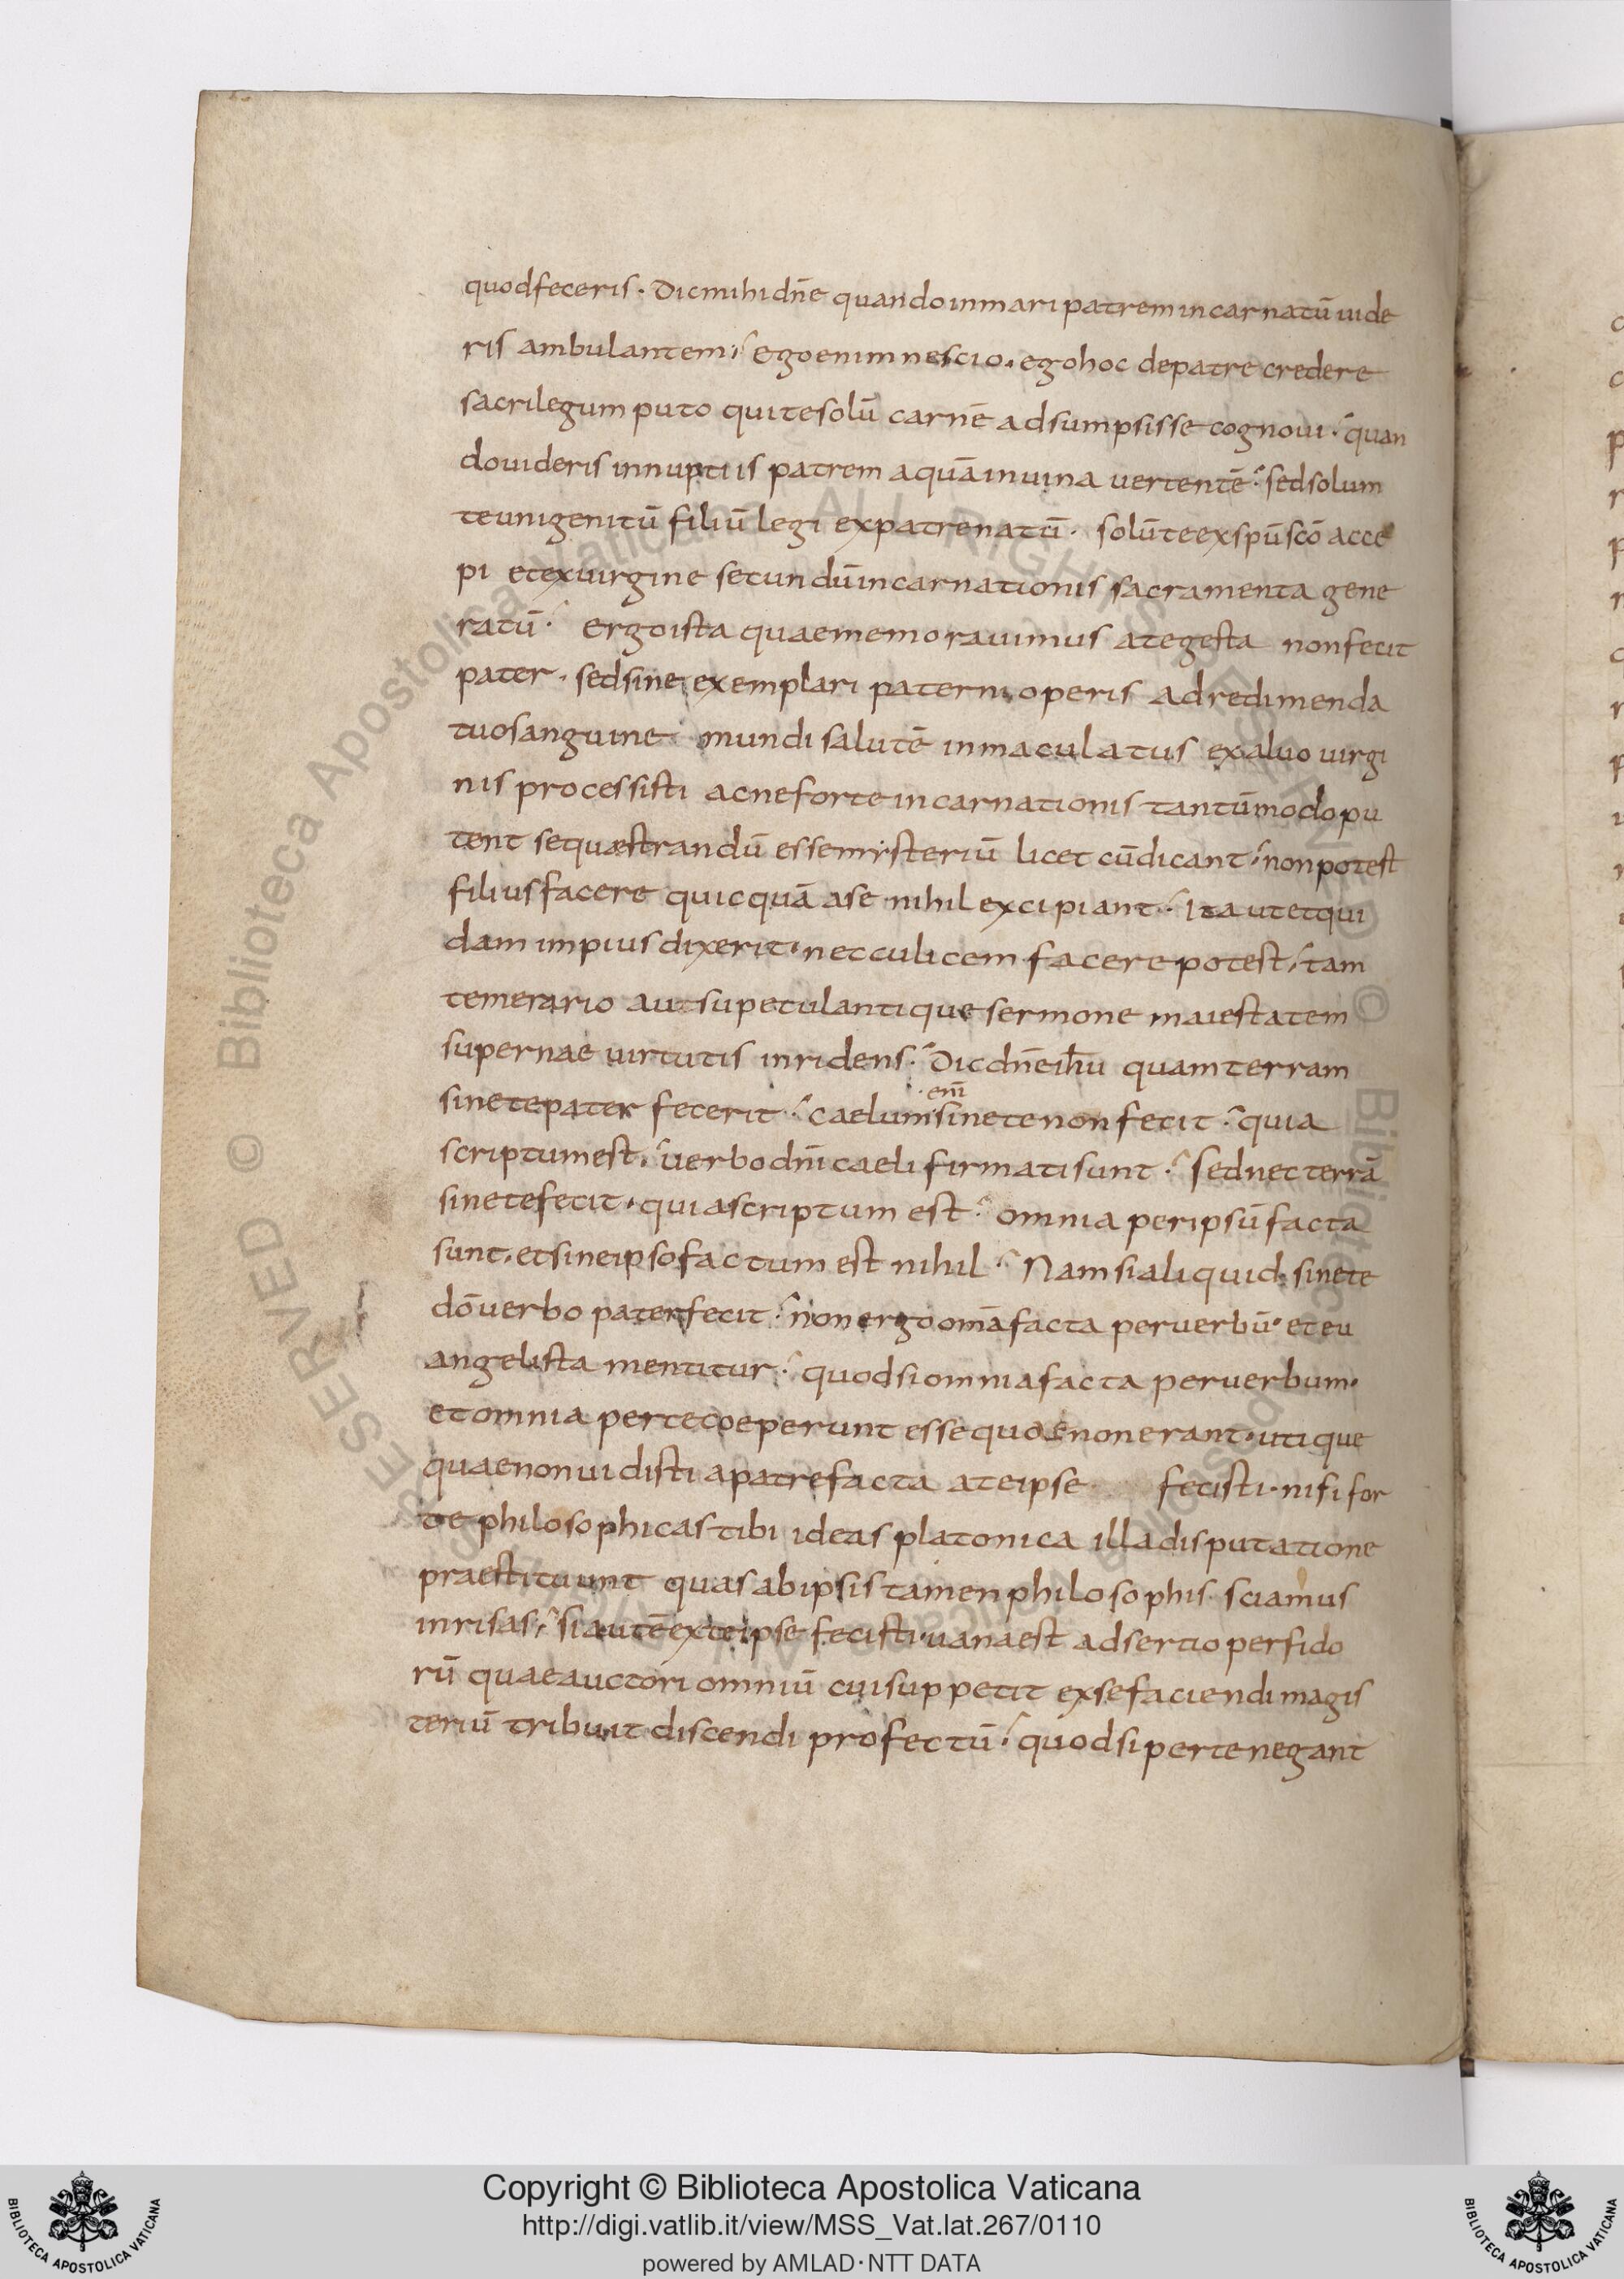 quodfeceris. Dicmihidn̄e quandoinmaripatremincarnatū uide
ris ambulantem; egoenimnescio. egohoc depatre credere
sacrilegum puto quitesolū carnē adsumpsisse cognoui. quan
douideris innuptiis patrem aquāinuina uertentē. sedsolum
teunigenitū filiū legi expatrenatū. solūteexspūscō acce
pi etexuirgine secundūincarnationis sacramenta gene
ratū. ergoista quaememorauimus ategesta nonfecit
pater. sedsine exemplari paterni operis adredimenda
tuosanguine mundi salutē inmaculatus exaluo uirgi
nis processisti acneforteincarnationis tantūmodopu
tent sequestrandū essemysteriū licet cūdicant. nonpotest
filiusfacere quicquā ase nihil excipiant. Ita utetqui
dam impiusdixerit. necculicem facerepotest. tam
temerario autsupetulantique sermone maiestatem
supernae uirtutis inridens. Dicdn̄eihū quamterram
sinetepater fecerit. caelum sinetenonfecit. quia
enī
scriptumest. uerbodn̄i caeli firmatisunt. sednec terrā
sinetefecit. quiascriptum est. omnia peripsūfacta
sunt. etsineipsofactum est nihil. Namsialiquid sinete
dō uerbo paterfecit. nonergo omāfacta peruerbū. eteu
angelista mentitur. quodsiomniafacta peruerbum.
etomnia pertecoeperunt essequaenonerant. utique
quaenonuidisti apatrefacta ateipse fecisti. nisi for
te philosophicas tibi ideas platonica illa disputatione
praestituunt quas abipsis tamen philosophis sciamus
inrisas. siautēexteipse fecisti. uanaest adsertio perfido
rū quaeauctori omniū cuisuppetit exsefaciendi magis
teriū tribuit discendi profectū. quodsipertenegant
Copyright © Biblioteca Apostolica Vaticana
http://digi.vatlib.it/view/MSS_Vat.lat.267/0110
powered by AMLAD·NTT DATA